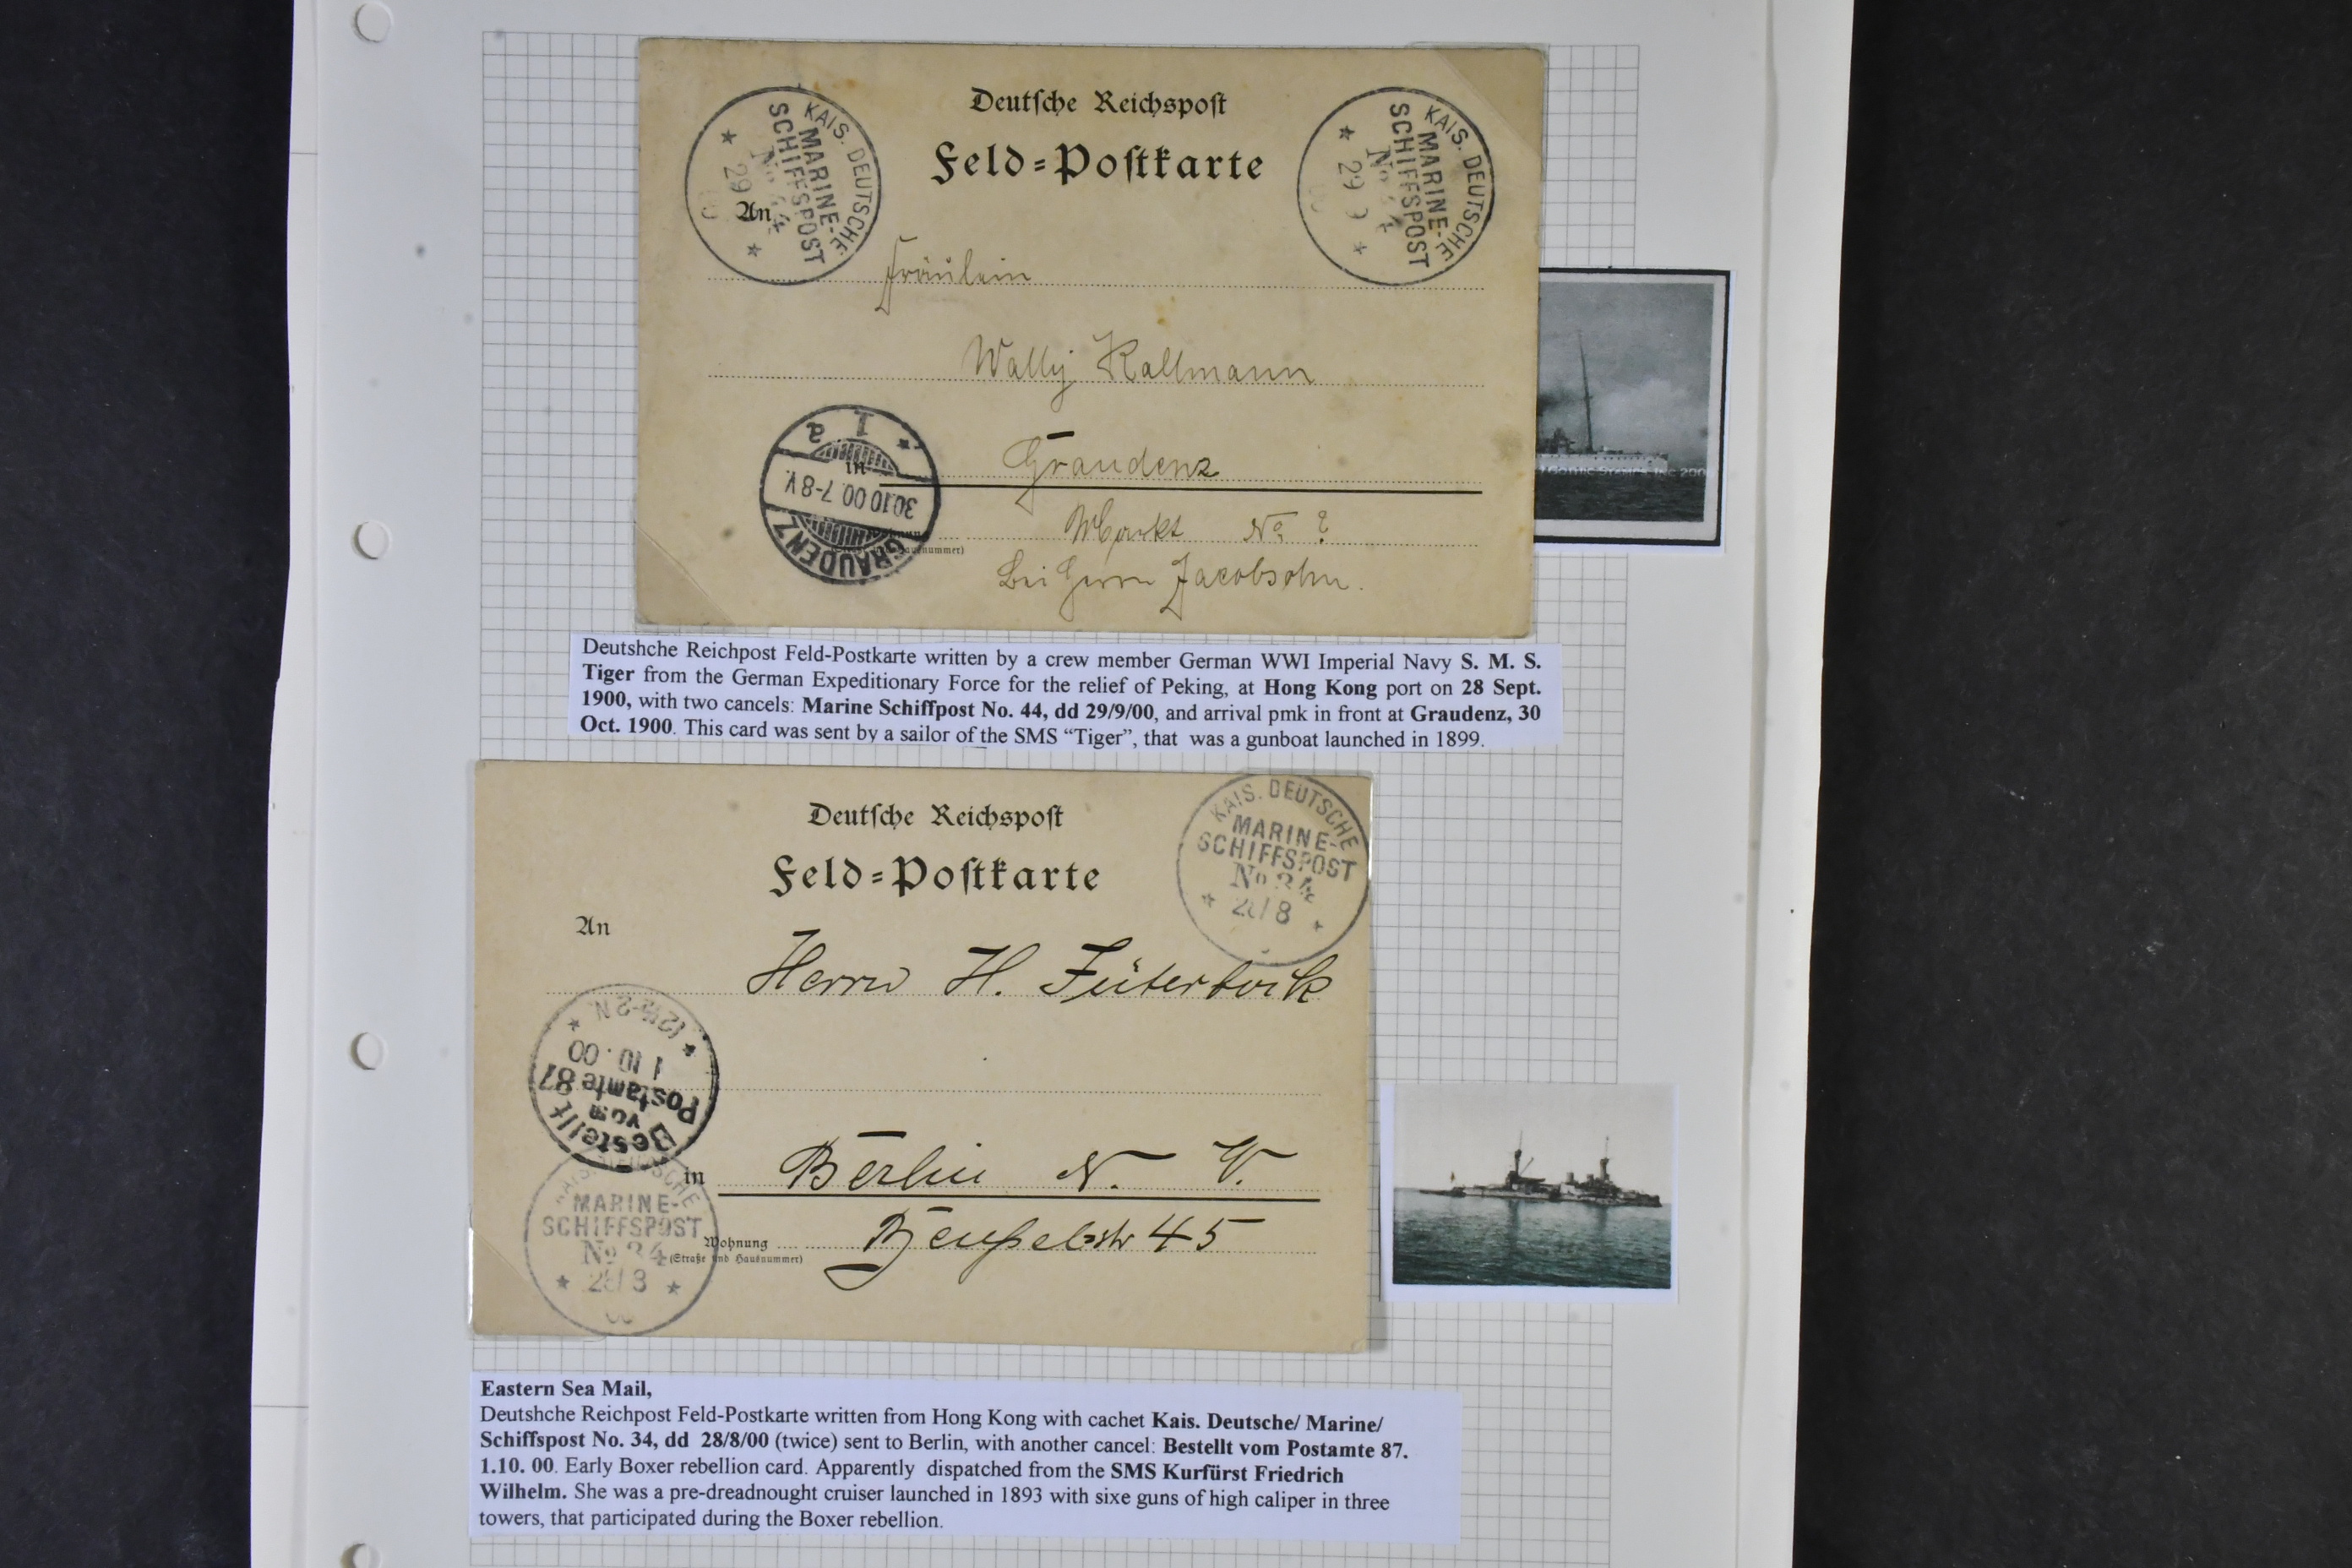 KAIS. DEUTSCHE
MARINE-
SCHIFFSPOST
No 44
29 9
Deutsche Reichspost
Feld=Postkarte
KAIS. DEUTSCHE
MARINE-
SCHIFFSPOST
29 9
An
Fräulein
Wally Kallmann
1 a
in
Graudenz
30.10.00.7-8V.
GRAUDENZ
Markt No
hausnummer)
Bei Herrn Jacobsohn.
Deutshche Reichpost Feld-Postkarte written by a crew member German WWI Imperial Navy S. M. S.
Tiger from the German Expeditionary Force for the relief of Peking, at Hong Kong port on 28 Sept.
1900, with two cancels: Marine Schiffpost No. 44, dd 29/9/00, and arrival pmk in front at Graudenz, 30
Oct. 1900. This card was sent by a sailor of the SMS “Tiger”, that was a gunboat launched in 1899.
KAIS. DEUTSCHE
MARINE-
SCHIFFSPOST
No 34
Deutsche Reichspost
Feld=Postkarte
An
Herrn H.
Bestellt
vom
Postamte 87
1 10.00
12½-2 N.
in
Berlin N. W.
KAIS. DEUTSCHE
MARINE-
SCHIFFSPOST
No 34
28/8
Wohnung
(Straße und Hausnummer)
Beusselstr 45
Eastern Sea Mail,
Deutshche Reichpost Feld-Postkarte written from Hong Kong with cachet Kais. Deutsche/ Marine/
Schiffspost No. 34, dd 28/8/00 (twice) sent to Berlin, with another cancel: Bestellt vom Postamte 87.
1.10. 00. Early Boxer rebellion card. Apparently dispatched from the SMS Kurfürst Friedrich
Wilhelm. She was a pre-dreadnought cruiser launched in 1893 with sixe guns of high caliper in three
towers, that participated during the Boxer rebellion.